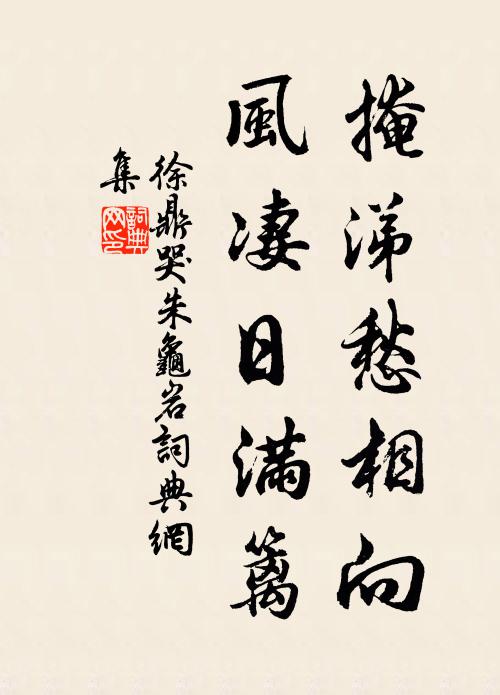 掩涕愁相向
風凄日滿籬
徐鼎哭朱龜岩詞典網
集
詞典
网印